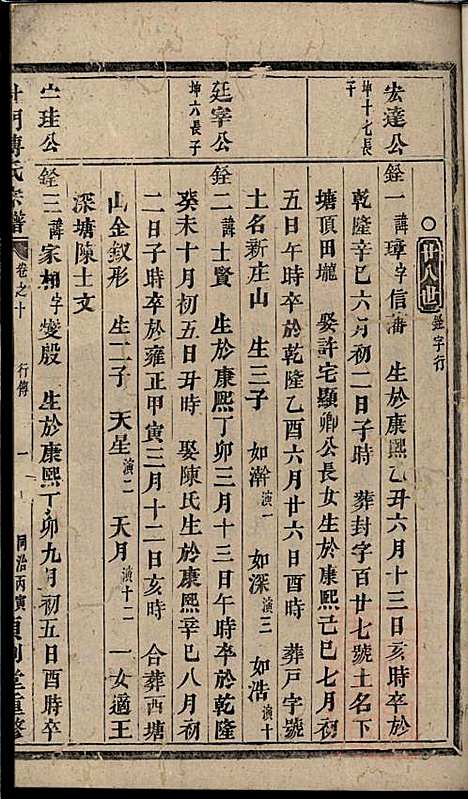 廿八世 銓字行
宏達公 坤十七長子
銓一諱璋字信藩 生於康熙乙丑六月十三日亥時卒於
乾隆辛巳六月初二日子時 葬封字百廿七號土名下
塘頂田壠 娶許宅顯卿公長女生於康熙己巳七月初
五日午時卒於乾隆乙酉六月廿六日酉時 葬戸字號
土名新庄山 生三子 如澣演一 如深演三 如浩演十
廷宰公 坤六長子
銓二諱士賢 生於康熙丁卯三月十三日午時卒於乾隆
癸未十月初五日丑時 娶陳氏生於康熙辛巳八月初
二日子時卒於雍正甲寅三月十二日亥時 合葬西塘
山金釵形 生二子 天星演二 天月演十二 一女適王
深塘陳士文
珪公
銓三諱家相字燮殷 生於康熙丁卯九月初五日酉時卒
門傅氏宗譜 卷之十 行傳 一 同治丙寅